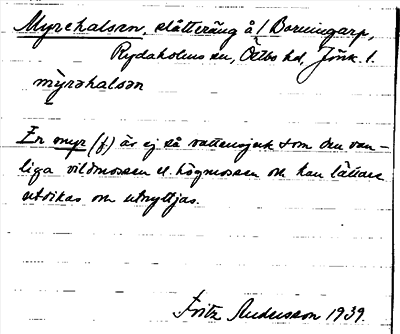 Myrehalsen, slåtteräng å Borningarp,
Rydaholms sn, Östbo hd, Jönk. l.
myrəhalsən
En myr (f) är ej så vattensjuk som den van-
liga vildmossen el. högmossen och kan lättare
utdikas och utnyttjas.
Fritz Andersson 1939.